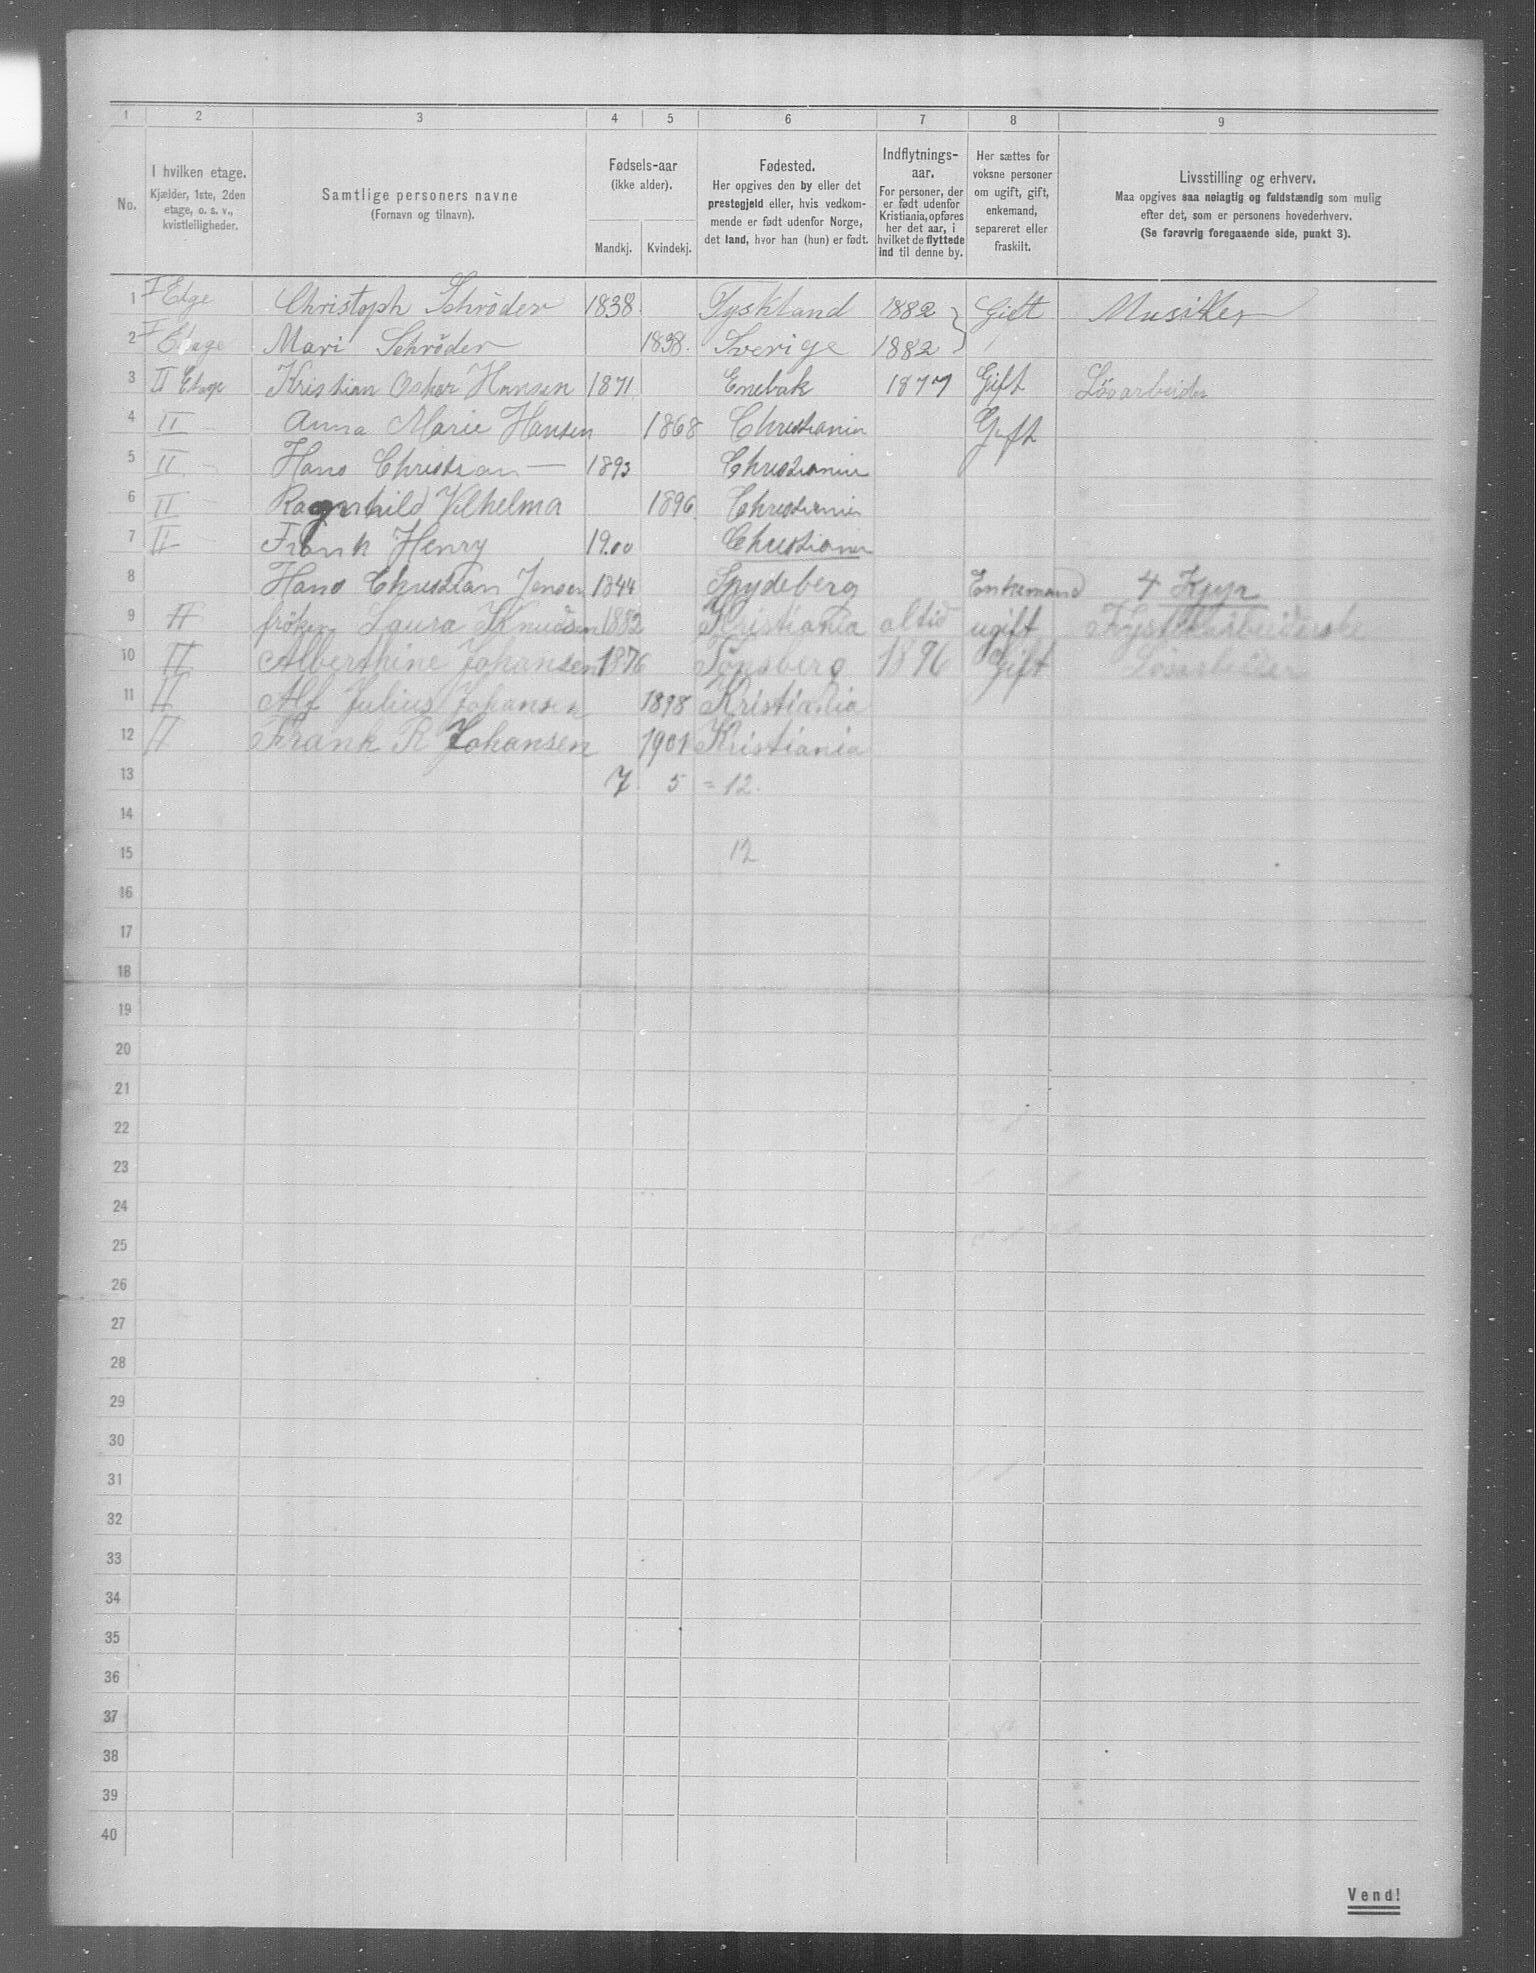 1 2 3 4 5 6 7 8 9
No.
I hvilken etage.
Kjælder, 1ste, 2den
etage, o. s. v.,
kvistleiligheder.
Samtlige personers navne
(Fornavn og tilnavn).
Fødsels-aar
(ikke alder).
Mandkj. Kvindekj.
Fødested.
Her opgives den by eller det
prestegjeld eller, hvis vedkom-
mende er født udenfor Norge,
det land, hvor han (hun) er født.
Indflytnings-
aar.
For personer, der
er født udenfor
Kristiania, opføres
her det aar, i
hvilket de flyttede
ind til denne by.
Her sættes for
voksne personer
om ugift, gift,
enkemand,
separeret eller
fraskilt.
Livsstilling og erhverv.
Maa opgives saa nøiagtig og fuldstændig som mulig
efter det, som er personens hovederhverv.
(Se forøvrig foregaaende side, punkt 3).
1 I Etge Christoph Schröder 1838 Tyskland 1882 } Gift Musiker
2 I Etage Mari Schröder 1838. Sverige 1882
3 II Etage Kristian Oskar Hansen 1871 Enebak 1877 Gift Lösarbeider
4 II Anna Marie Hansen 1868 Christiania Gift
5 II Hans Christian — 1893 Christiania
6 II Ragnhild Vilhelma 1896 Christiania
7 II Frank Henry 1900 Christiania
8 Hans Christian Jensen 1844 Spydeberg Enkemand 4 Kyr
9 II fröken Laura Knudsen 1882 Kristiania altid ugift
10 II Alberthine Johansen 1876 Tönsberg 1896 Gift Lösarbeider
11 II Alf Julius Johansen 1898 Kristiania
12 II Frank R Johansen 1901 Kristiania
13 7 5 = 12.
14
15 12
16
17
18
19
20
21
22
23
24
25
26
27
28
29
30
31
32
33
34
35
36
37
38
39
40
Vend!